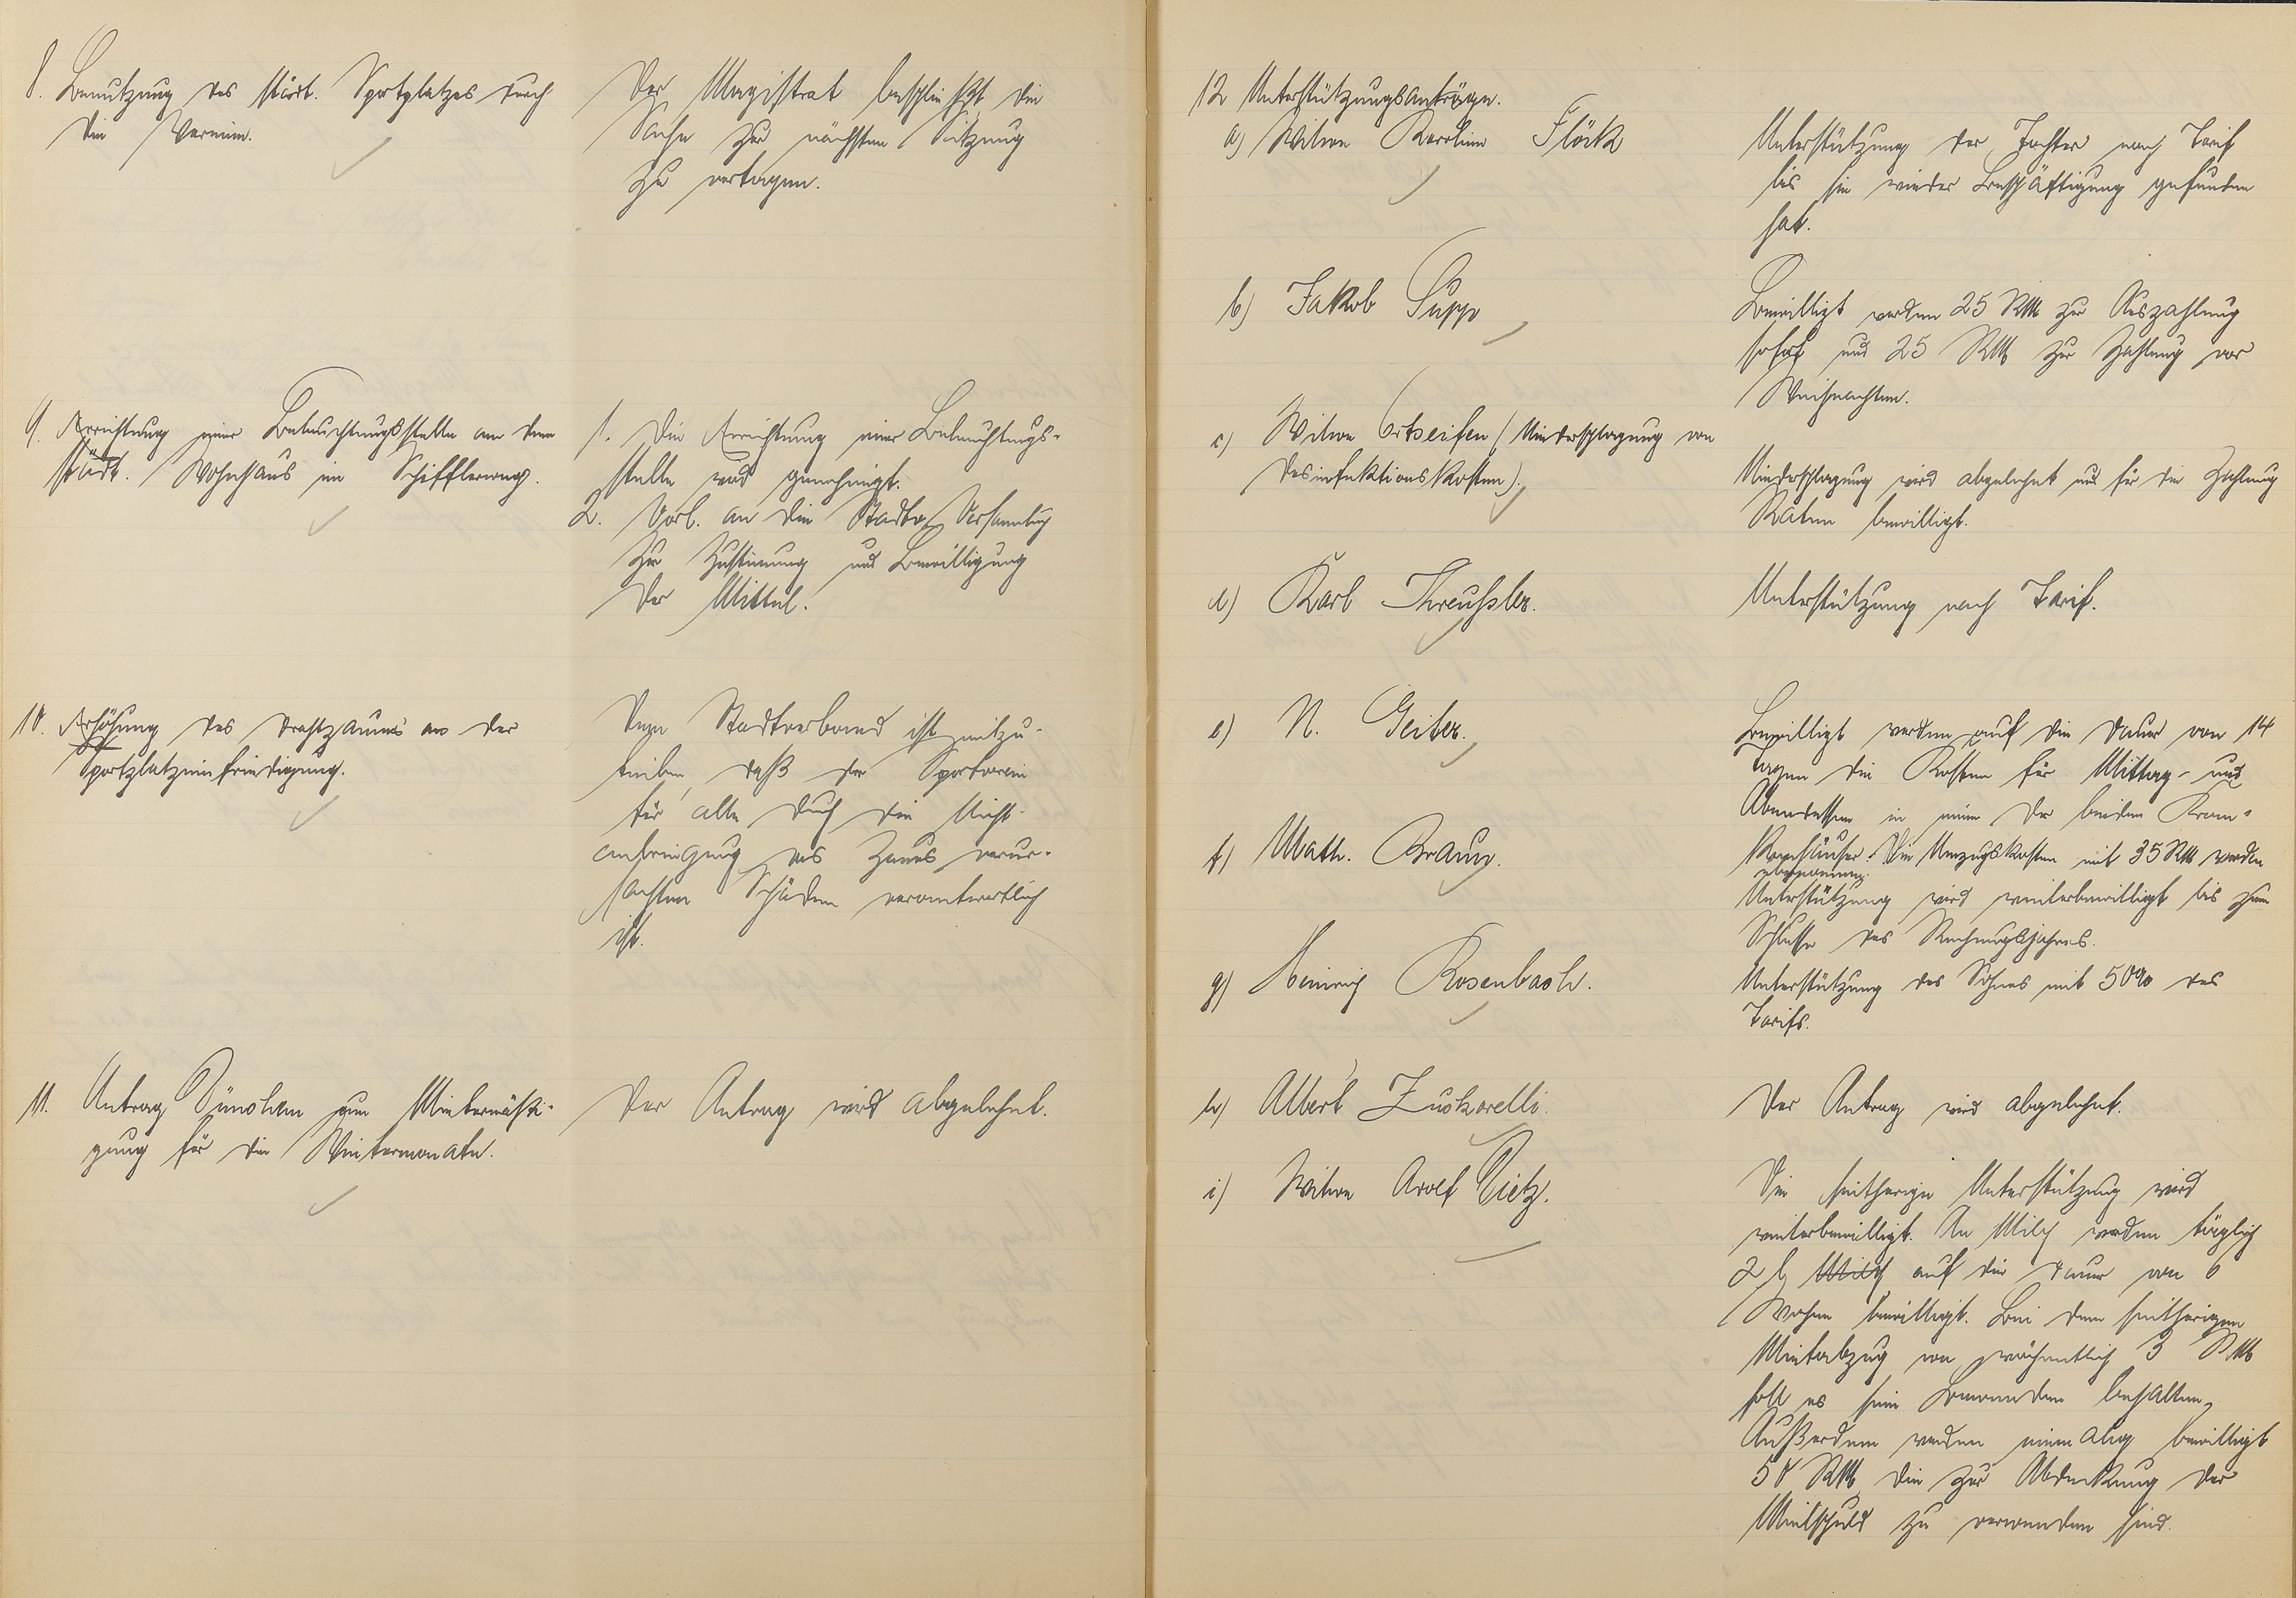 8. Benutzung des städt. Sportplatzes durch
die Vereine.
Der Magistrat beschließt die
Sache zur nächsten Sitzung
zu vertagen.
9. Errichtung einer Beleuchtungsstelle an dem
städt. Wohnhaus im Schifflerweg.
1. Die Errichtung einer Beleuchtungs-
stelle wird genehmigt.
2. Vorl. an die Stadtv. Versammlung
zur Zustimmung und Bewilligung
der Mittel.
10. Erhöhung des Drahtzaunes an der
Sportplatzeinfriedigung.
Dem Stadtverband ist mitzu-
teilen, daß der Sportverein
für alle durch die Nicht-
anbringung des Zaunes verur-
sachten Schäden verantwortlich
ist.
11. Antrag um Mietermäßi-
gung für die Wintermonate.
Der Antrag wird abgelehnt.
12 Unterstützungsanträge.
a) Witwe Karoline Flöck
Unterstützung der Tochter nach Tarif
bis sie wieder Beschäftigung gefunden
hat.
b) Jakob Supp
Bewilligt werden 25 RM zur Auszahlung
sofort und 25 RM zur Zahlung vor
Weihnachten.
c) Witwe Ortseifen (Niederschlagung von
Desinfektionskosten).
Niederschlagung wird abgelehnt und für die Zahlung
Raten bewilligt.
d) Karl Threußler.
Unterstützung nach Tarif.
e) N. Geiter.
Bewilligt werden auf die Dauer von 14
Tagen die Kosten für Mittag- und
Abendessen in einem der beiden Kran-
kenhäuser. Die Umzugskosten mit 35 RM werden
übernommen.
f) Math. Braun.
Unterstützung wird weiterbewilligt bis zum
Schlusse des Rechnungsjahres.
g) Heinrich Rosenbach.
Unterstützung des Sohnes mit 50% des
Tarifs.
h) Albert Zuckarelli.
Der Antrag wird abgelehnt.
i) Witwe Adolf Dietz.
Die seitherige Unterstützung wird
weiterbewilligt. An Milch werden täglich
2 l Milch auf die Dauer von 6
Wochen bewilligt. Bei dem seitherigen
Mietabzug von wöchentlich 3 RM
soll es sein Bewenden behalten,
Außerdem werden einmalig bewilligt
50 RM, die zur Abdeckung der
Mietschuld zu verwenden sind.